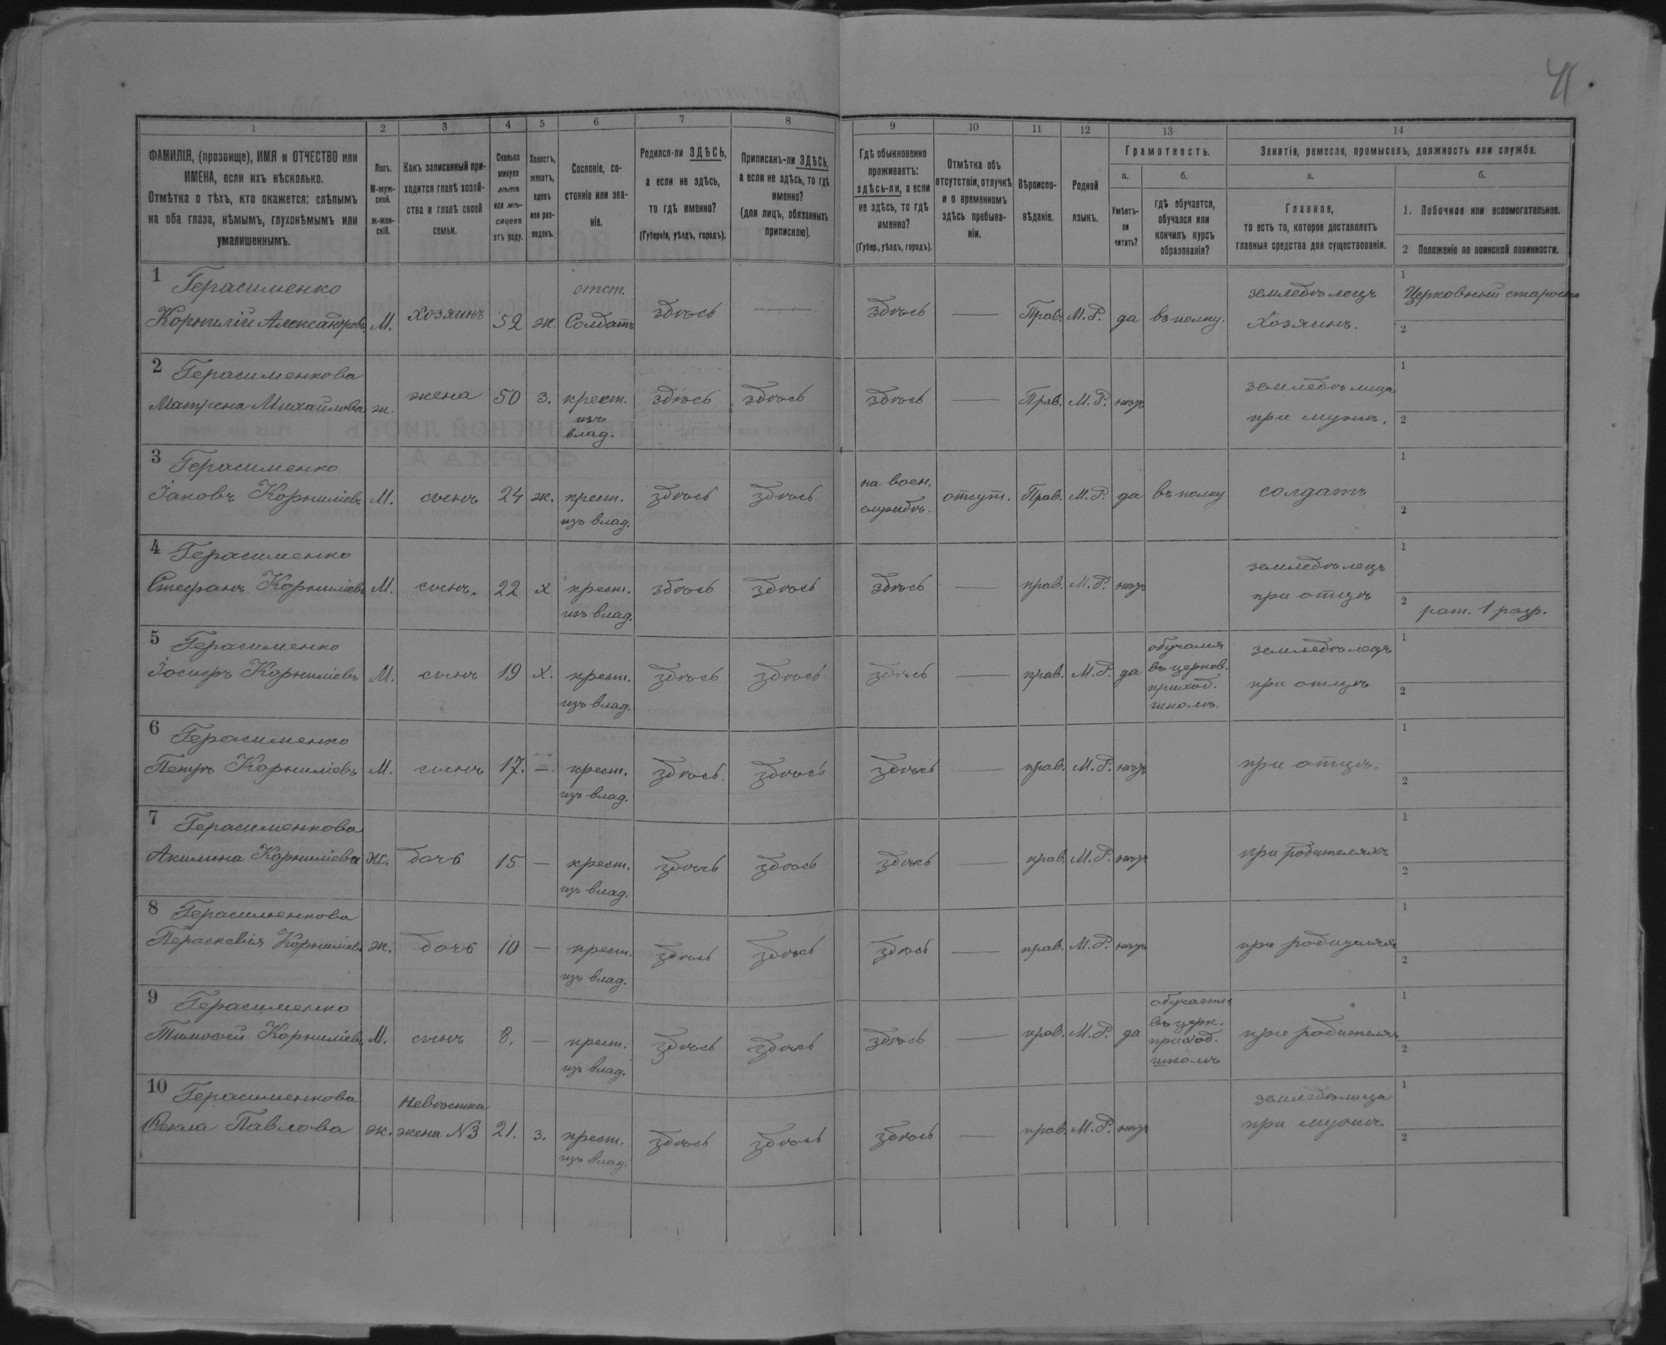 41
1 2 3 4 5 6 7 8 9 10 11 12 13 14
ФАМИЛІЯ, (прозвище), ИМЯ и ОТЧЕСТВО или
ИМЕНА, если ихъ нѣсколько.
Отмѣтка о тѣхъ, кто окажется: слѣпымъ
на оба глаза, нѣмымъ, глухонѣмымъ или
умалишеннымъ.
Полъ.
М-муж-
ской.
ж-жен-
скій.
Какъ записанный при-
ходится главѣ хозяй-
ства и главѣ своей
семьи.
Сколько
минуло
лѣтъ
или мѣ-
сяцевъ
отъ роду.
Холостъ,
женатъ,
вдовъ
или раз-
веденъ.
Сословіе, со-
стояніе или зва-
ніе.
Родился-ли ЗДѢСЬ,
а если не здѣсь,
то гдѣ именно?
(Губернія, уѣздъ, городъ).
Приписанъ-ли ЗДѢСЬ,
а если не здѣсь, то гдѣ
именно?
(для лицъ, обязанныхъ
припискою).
Гдѣ обыкновенно
проживаетъ:
здѣсь-ли, а если
не здѣсь, то гдѣ
именно?
(Губер., уѣздъ, городъ).
Отмѣтка объ
отсутствіи, отлучкѣ
и о временномъ
здѣсь пребыва-
ніи.
Вѣроиспо-
вѣданіе.
Родной
языкъ.
Грамотность.
а.
Умѣетъ-
ли
читать?
б.
гдѣ обучается,
обучался или
кончилъ курсъ
образованія?
Занятія, ремесло, промыселъ, должность или служба.
а.
Главное,
то есть то, которое доставляетъ
главныя средства для существованія.
б.
1. Побочное или вспомогательное.
2 Положеніе по воинской повинности.
1 Герасименко отст. земледѣлецъ 1 Церковный староста
Корнилій Александровъ М. Хозяинъ 52 ж. Солдатъ здѣсь — здѣсь — Прав. М.Р. да въ полку. Хозяинъ. 2
2 Герасименкова земледѣлица 1
Матрена Михайлова ж. жена 50 з. крест. здѣсь здѣсь здѣсь — Прав. М.Р. нѣтъ при мужѣ. 2
изъ
влад.
3 Герасименко на воен. 1
Іаковъ Корниліевъ М. сынъ 24 ж. крест. здѣсь здѣсь службѣ. отсут. Прав. М.Р. да въ полку солдатъ
изъ влад. 2
4 Герасименко земледѣлецъ 1
Стефанъ Корниліевъ М. сынъ. 22 х крест. здѣсь здѣсь здѣсь — прав. М.Р. нѣтъ при отцѣ
изъ влад. 2 рат. 1 разр.
5 Герасименко обучался земледѣлецъ 1
Іосифъ Корниліевъ М. сынъ 19 х. крест. здѣсь здѣсь здѣсь — прав. М.Р. да въ церков. при отцѣ 2
изъ влад. приход.
школѣ.
6 Герасименко 1
Петръ Корниліевъ М. сынъ 17. — крест. здѣсь. здѣсь здѣсь — прав. М.Р. нѣтъ при отцѣ.
изъ влад. 2
7 Герасименкова 1
Акилина Корниліева ж. дочь 15 — крест. здѣсь здѣсь здѣсь — прав. М.Р. нѣтъ при родителяхъ
изъ влад. 2
8 Герасименкова 1
Параскевія Корниліева ж. дочь 10 — крест. здѣсь здѣсь здѣсь — прав. М.Р. нѣтъ при родителяхъ
изъ влад. 2
9 Герасименко обучается 1
Тимофей Корниліевъ М. сынъ 8. — крест. здѣсь здѣсь здѣсь — прав. М.Р. да въ церк. при родителяхъ
изъ влад. приход. 2
школѣ
10 Герасименкова Невѣстка земледѣлица 1
Ѳекла Павлова ж. жена №3 21. з. крест. здѣсь здѣсь здѣсь — прав. М.Р. нѣтъ при мужѣ.
изъ влад. 2